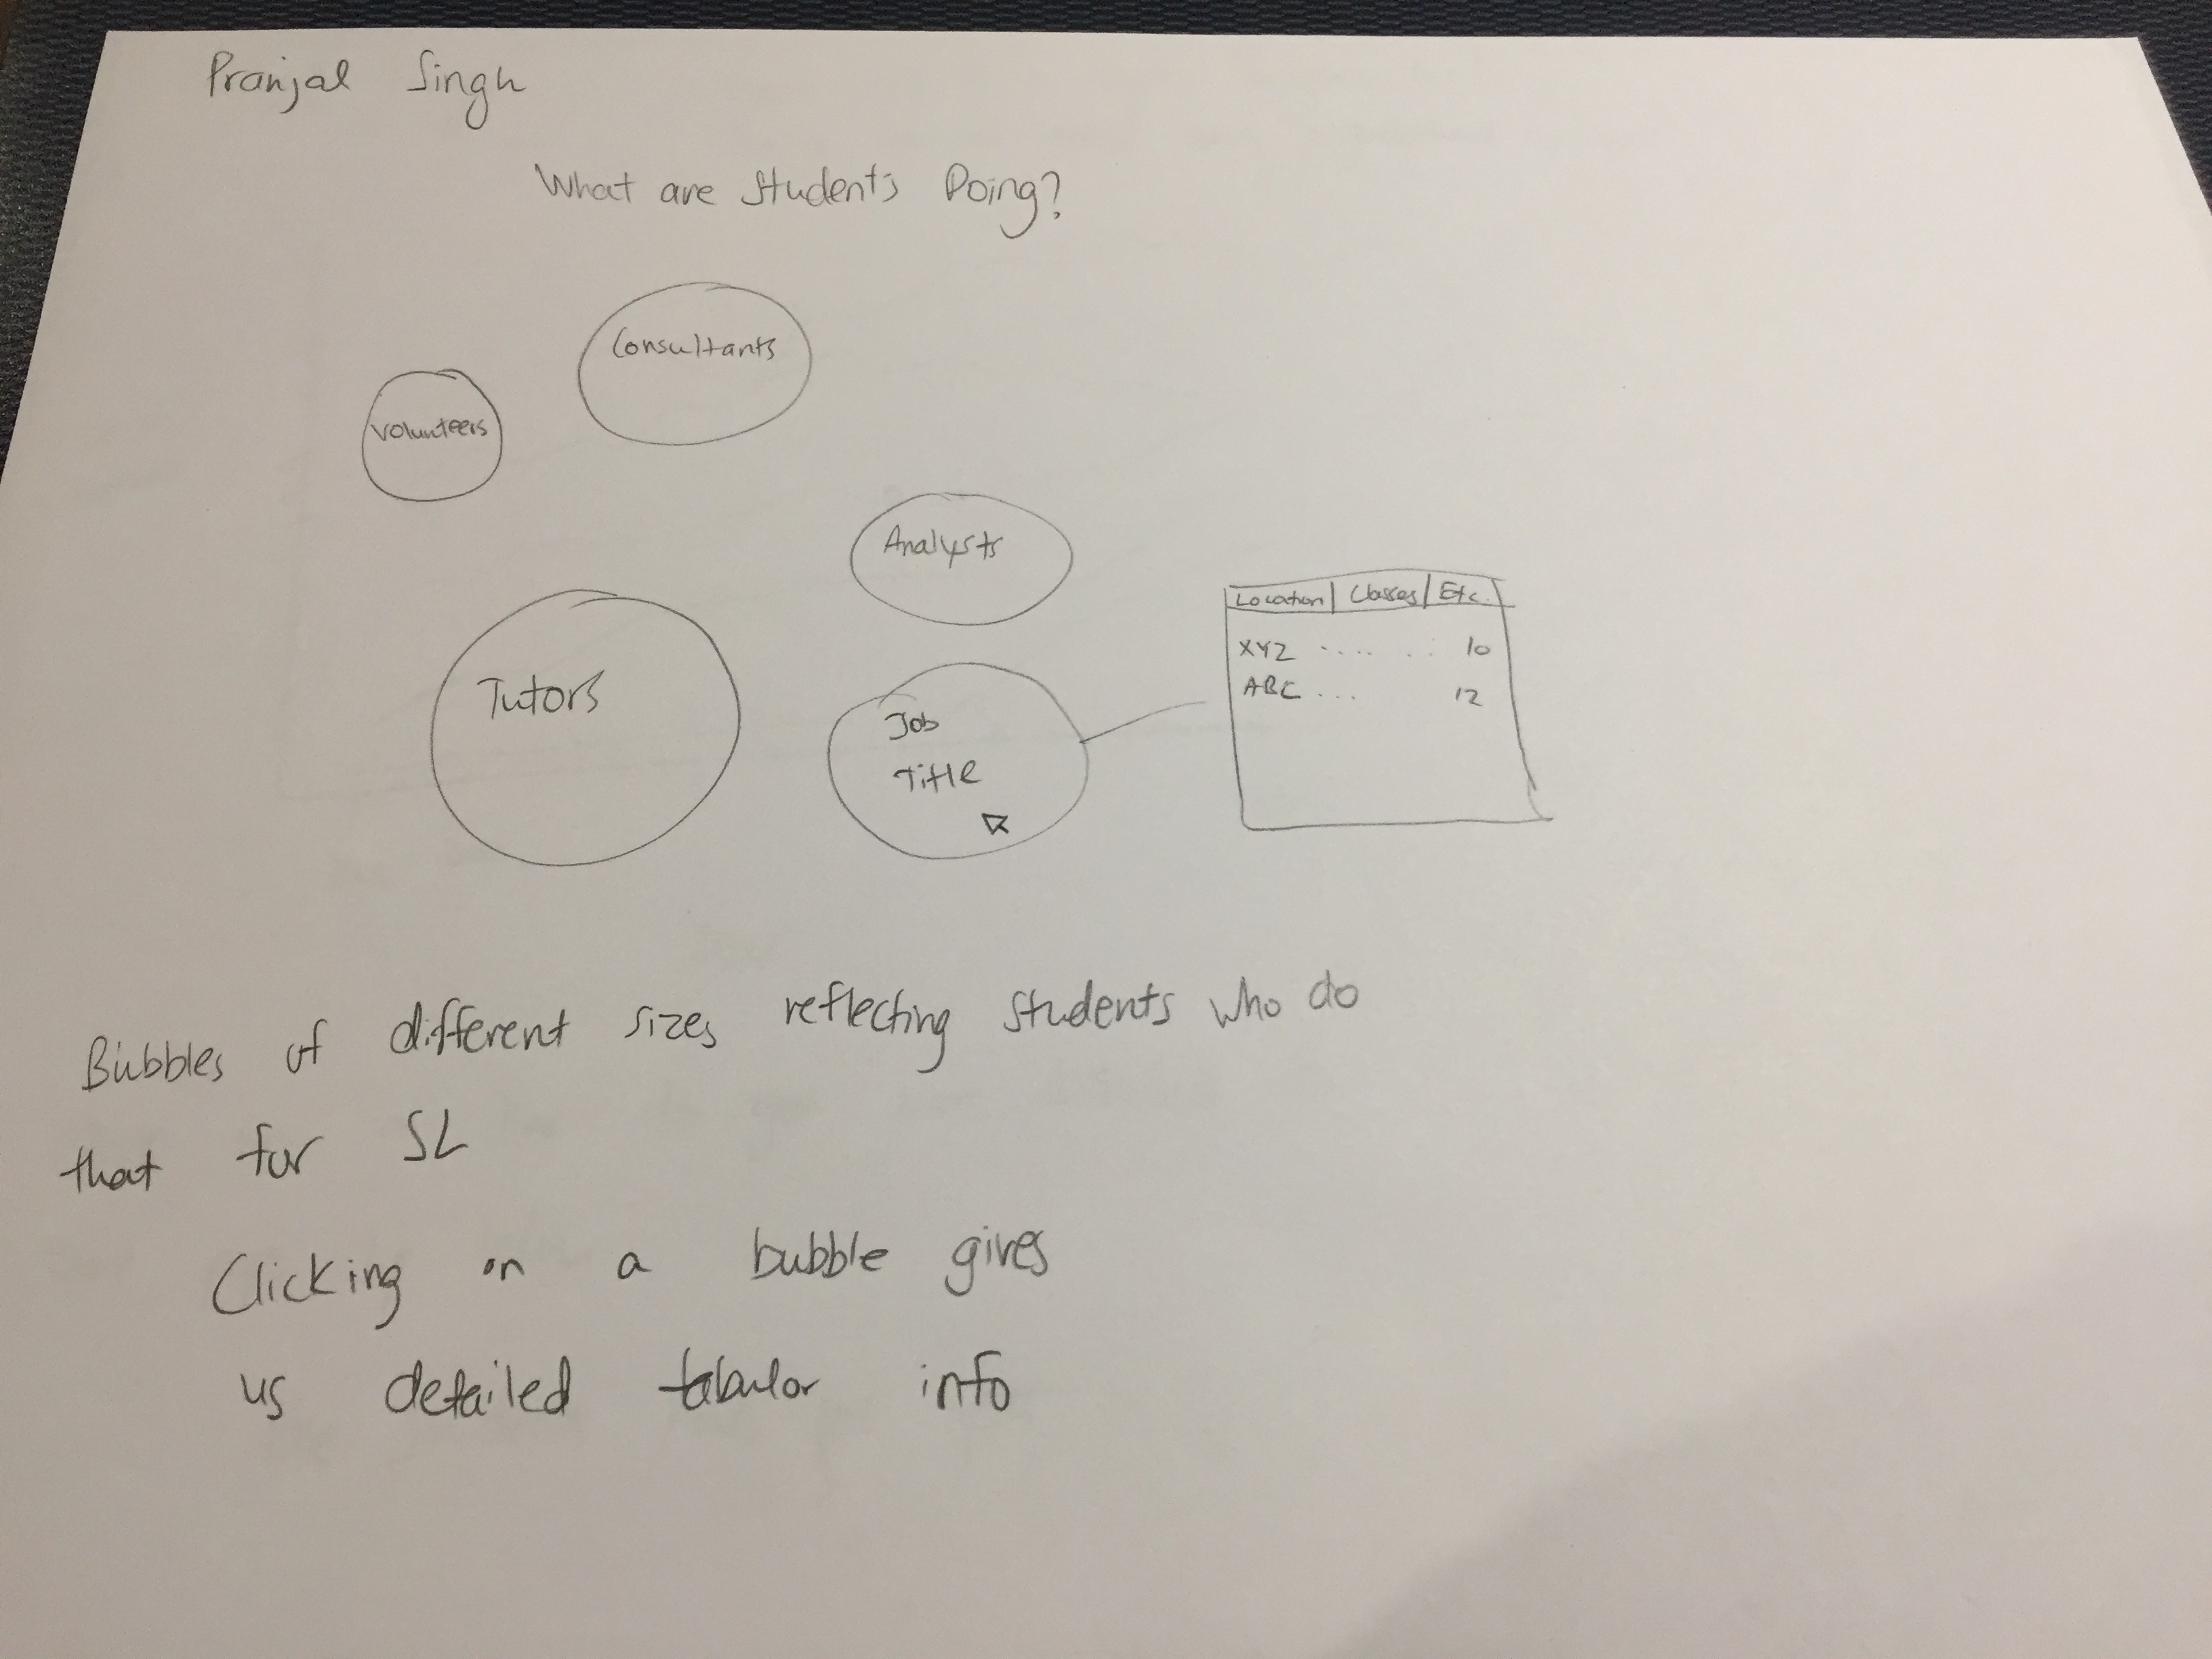 Pranjal Singh
What are Students Doing?
Consultants
Volunteers
Analysts
Location | Classes | Etc.
XYZ .... .. 10
ABC ... 12
Tutors
Job
Title
Bubbles of different sizes reflecting students who do
that for SL
Clicking on a bubble gives
us detailed tabular info